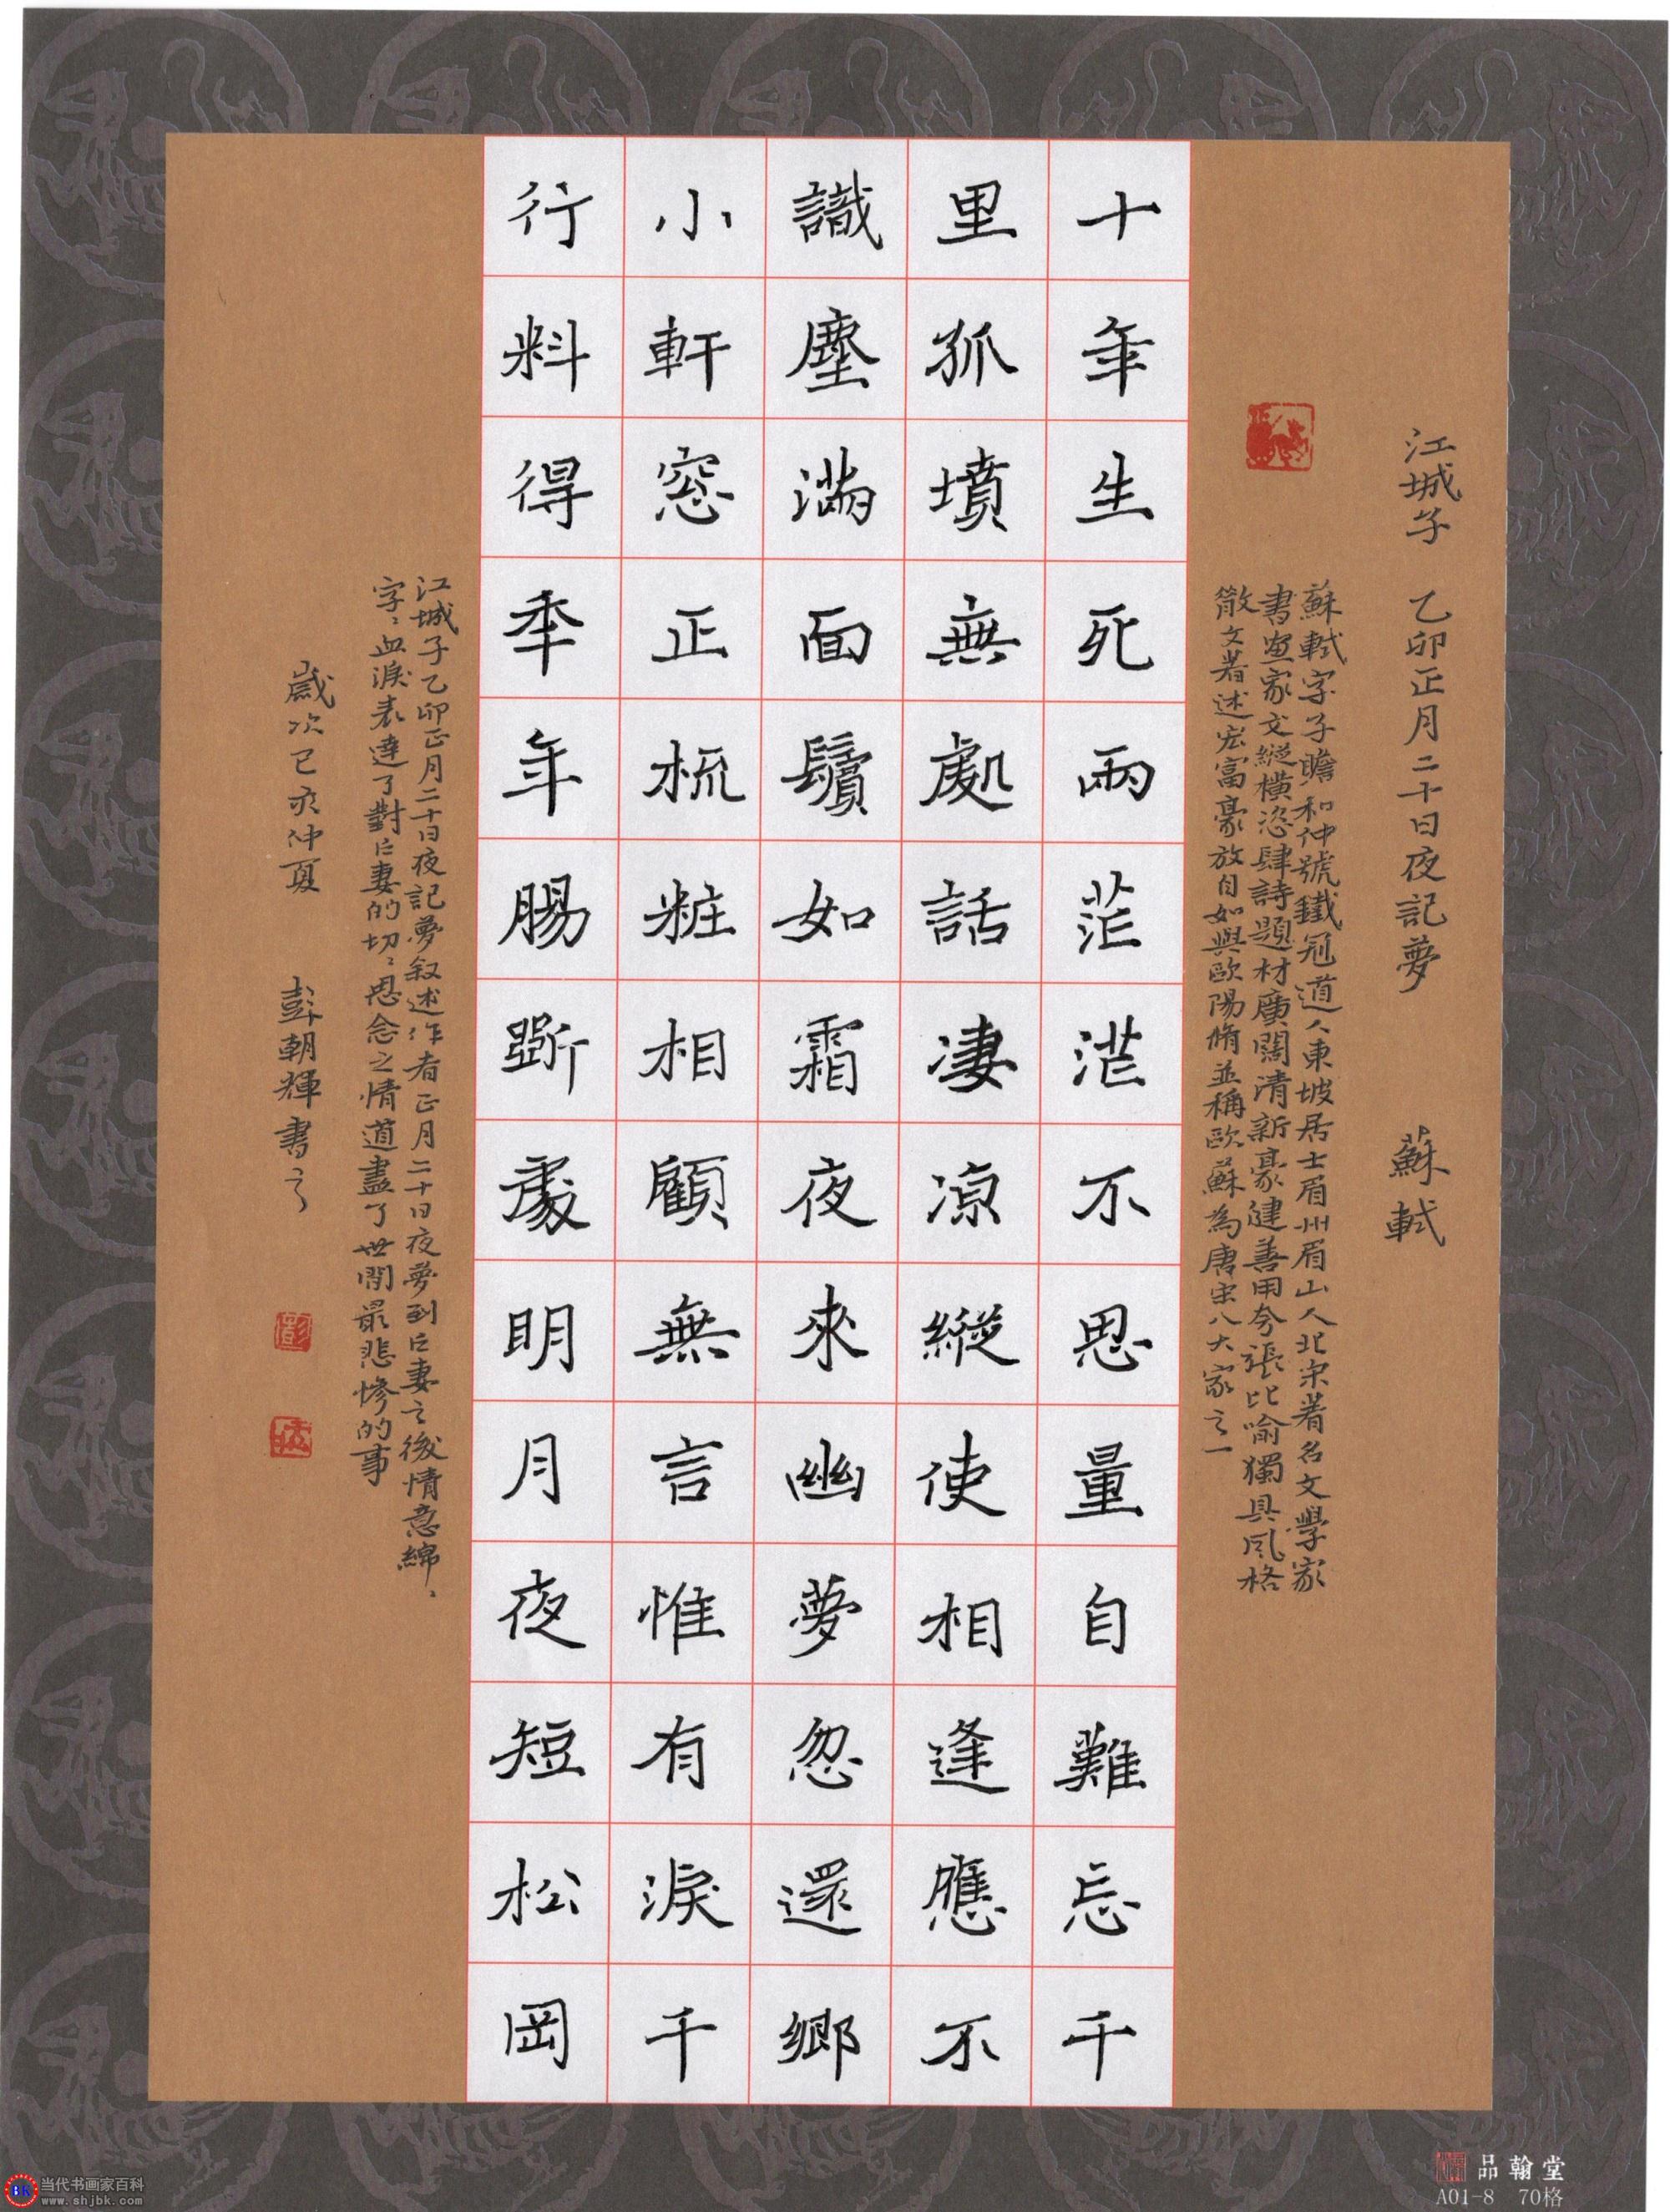 江城子 乙卯正月二十日夜記夢 蘇軾
蘇軾字子瞻和仲號鐵冠道人東坡居士眉州眉山人北宋著名文學家
書畫家文縱橫恣肆詩題材廣闊清新豪健善用夸張比喻獨具風格
散文著述宏富豪放自如與歐陽脩並稱歐蘇為唐宋八大家之一
十年生死兩茫茫不思量自難忘千
里孤墳無處話淒涼縱使相逢應不
識塵滿面鬢如霜夜來幽夢忽還鄉
小軒窓正梳粧相顧無言惟有淚千
行料得年年腸斷處明月夜短松岡
江城子乙卯正月二十日夜記夢叙述作者正月二十日夜夢到亡妻之後情意綿、
字、血淚表達了對亡妻的切、思念之情道盡了世間最悲慘的事
歲次己亥仲夏 彭朝輝書之
品翰堂
A01-8 70格
BK 当代书画家百科
www.shjbk.com